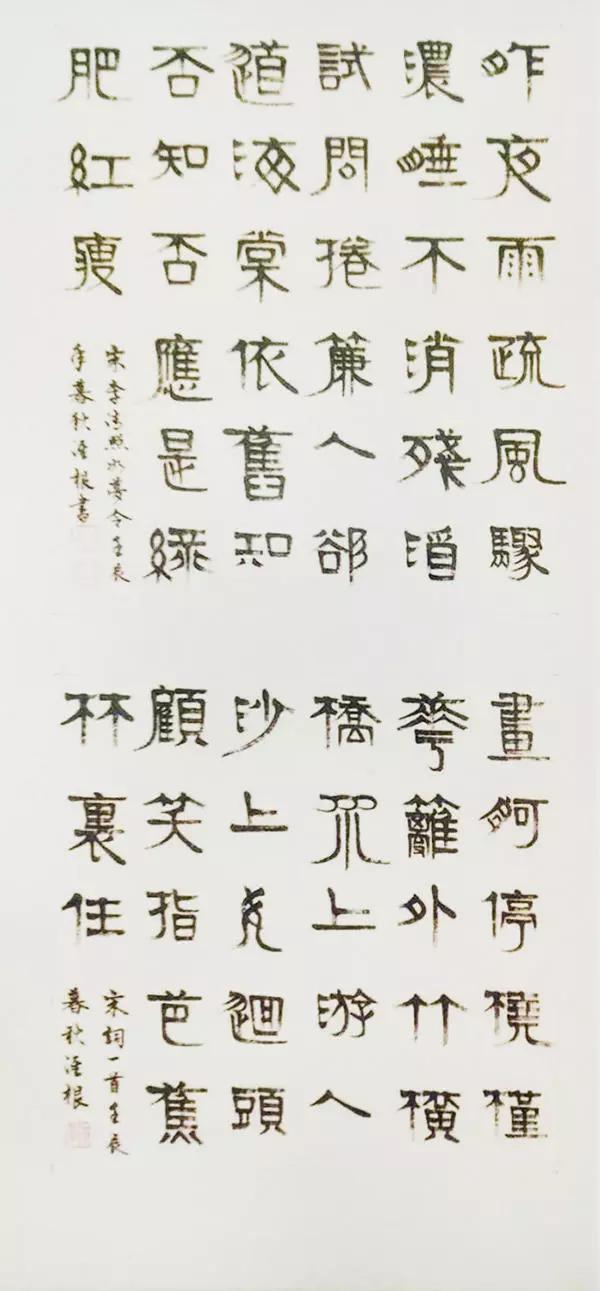 昨夜雨疏風驟
濃睡不消殘酒
試問捲簾人卻
道海棠依舊知
否知否應是綠
肥紅瘦
宋李清照如夢令壬辰
年暮秋根書
畫舸停橈槿
華籬外竹橫
橋水上游人
沙上女迴頭
顧笑指芭蕉
林裏住
宋詞一首壬辰
暮秋根